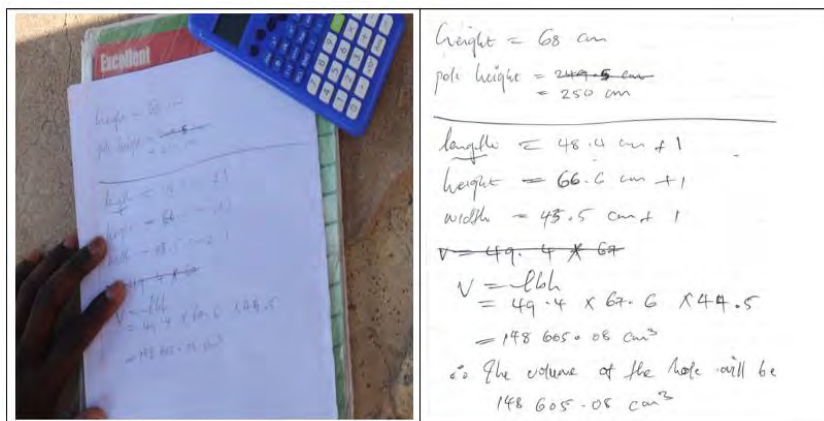 Excellent
height = 68 cm
pole height = 249.5 cm
= 250 cm
length = 48.4 cm + 1
height = 66.6 cm + 1
width = 43.5 cm + 1
V = 49.4 × 67
V = lbh
= 49.4 × 67.6 × 44.5
= 148 605.08 cm³
height = 68 cm
pole height = 249.5 cm
= 250 cm
length = 48.4 cm + 1
height = 66.6 cm + 1
width = 43.5 cm + 1
V = 49.4 × 67
V = lbh
= 49.4 × 67.6 × 44.5
= 148 605.08 cm³
∴ The volume of the hole will be
148 605.08 cm³